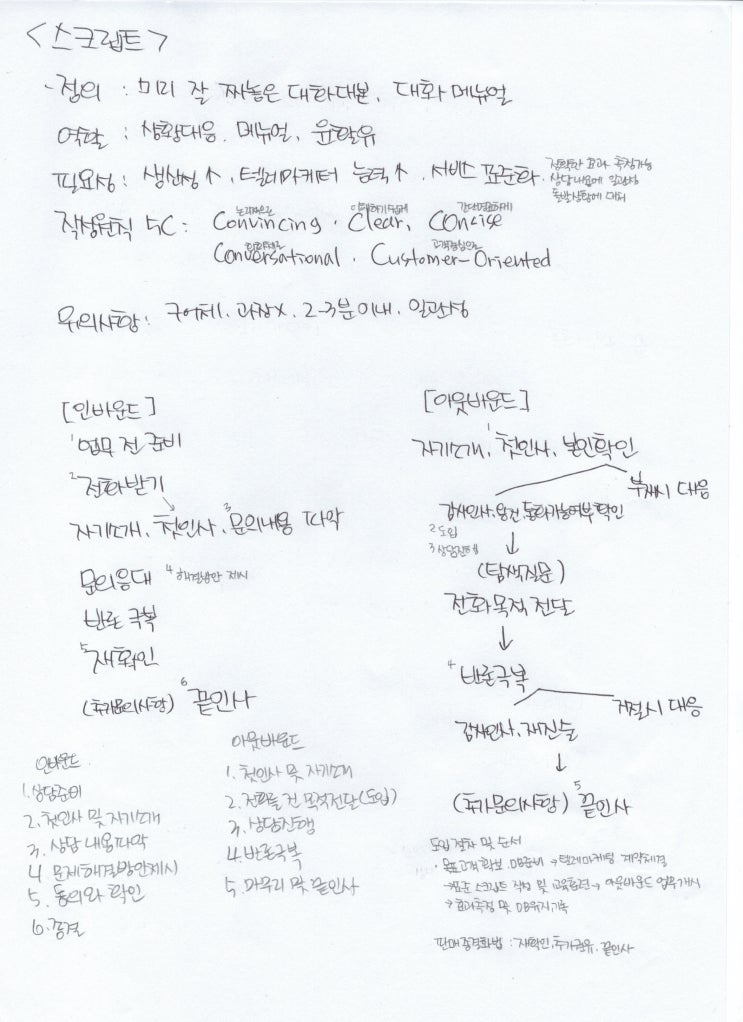 <스크립트>
- 정의 : 미리 잘 짜놓은 대화대본, 대화 메뉴얼
역할 : 상황대응, 메뉴얼, 윤활유
필요성 : 생산성↑, 텔레마케터 능력↑, 서비스 표준화,
정확한 효과 측정가능
상담내용에 일관성
돌발상황에 대처
작성원칙 5C : Convincing, Clear, Concise
논리적으로 이해하기쉽게 간단명료하게
Conversational, Customer-Oriented
회화체로 고객중심으로
유의사항 : 구어체, 과장x, 2-3분이내, 일관성
[인바운드]
1 업무 전 준비
2 전화받기
자기소개, 첫인사, 3 문의내용 파악
문의응대 4 해결방안 제시
반론 극복
5 재확인
(추가문의사항) 6 끝인사
[아웃바운드]
자기소개, 1 첫인사, 본인확인
부재시 대응
감사인사, 용건, 통화가능여부 확인
2 도입
3 상담진행
↓
(탐색질문)
전화목적 전달
↓
4 반론극복
거절시 대응
감사인사, 재진술
↓
(추가문의사항) 5 끝인사
인바운드
1. 상담준비
2. 첫인사 및 자기소개
3. 상담 내용파악
4. 문제해결방안제시
5. 동의와 확인
6. 종결
아웃바운드
1. 첫인사 및 자기소개
2. 전화를 건 목적전달(도입)
3. 상담진행
4. 반론극복
5. 마무리 및 끝인사
도입 절차 및 순서
· 목표고객 확보, DB준비 → 텔레마케팅 계약체결
→ 표준 스크립트 작성 및 교육훈련 → 아웃바운드 업무개시
→ 효과측정 및 DB유지기록
판매종결화법 : 재확인, 추가권유, 끝인사